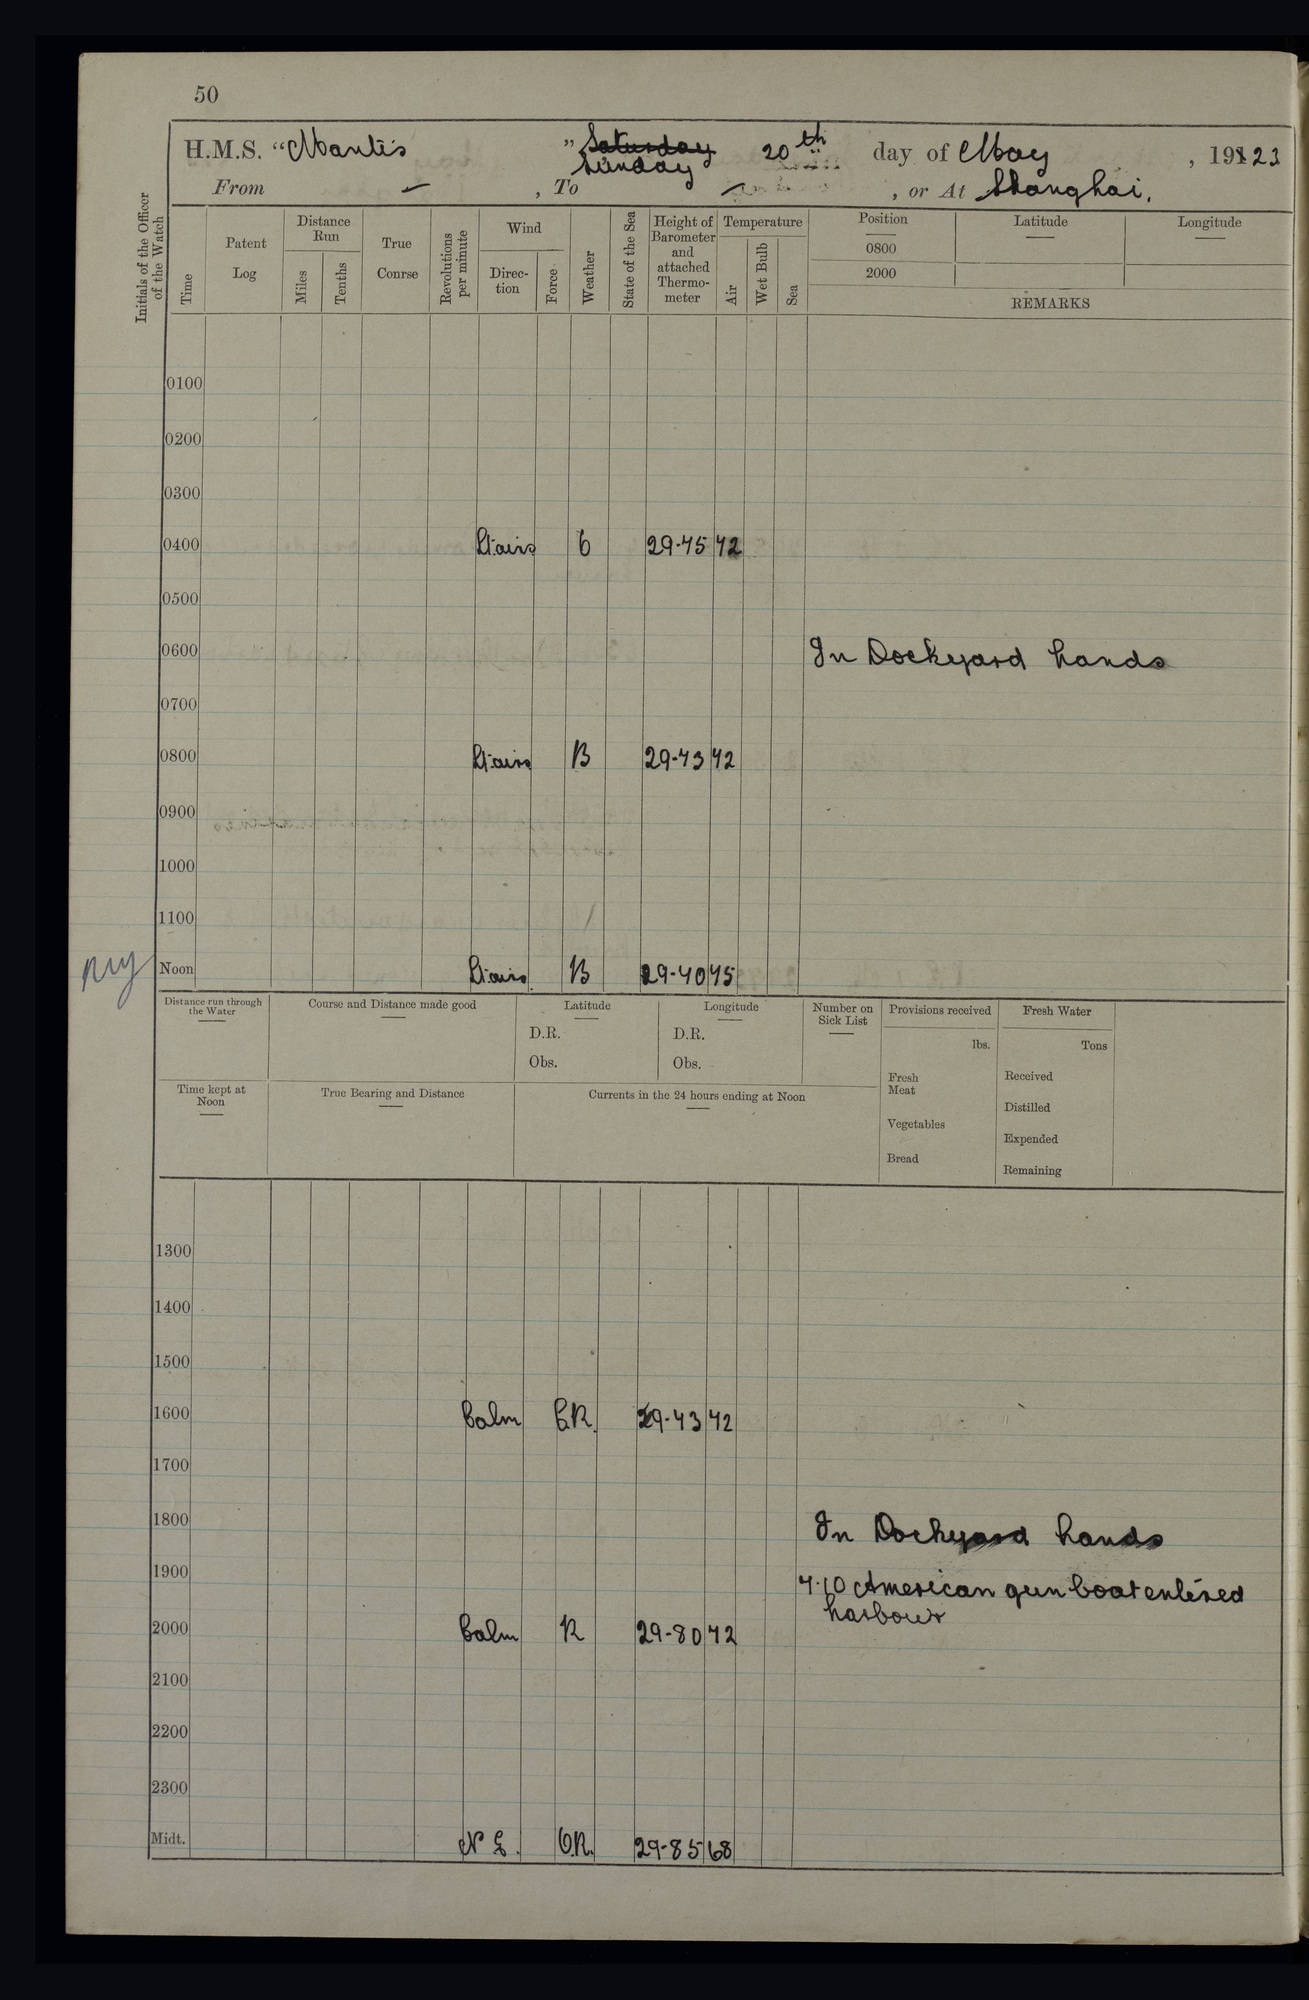 50
H.M.S. "Mantis" Saturday 20th day of May, 1923
Sunday
From – , To – , or At Shanghai.
Initials of the Officer of the Watch
Time
Patent Log
Distance Run
Miles
Tenths
True Conrse
Revolutions per minute
Wind
Direc-tion
Force
Weather
State of the Sea
Height of Barometer and attached Thermo-meter
Temperature
Air
Wet Bulb
Sea
Position
Latitude
Longitude
0800
2000
REMARKS
0100
0200
0300
0400 29.75 72
0500
0600 In Dockyard hands
0700
0800 B 29.73 72
0900
1000
1100
Noon B 29.70 75
Distance run through the Water
Course and Distance made good
Latitude
D.R.
Obs.
Longitude
D.R.
Obs.
Number on Sick List
Provisions received
lbs.
Fresh Meat
Vegetables
Bread
Fresh Water
Tons
Received
Distilled
Expended
Remaining
Time kept at Noon
True Bearing and Distance
Currents in the 24 hours ending at Noon
1300
1400
1500
1600 Calm C.R. 29.73 72
1700
1800 In Dockyard hands
1900 7.10 American gun boat entered
harbour
2000 Calm R 29.80 72
2100
2200
2300
Midt. N E. O.R. 29.85 68